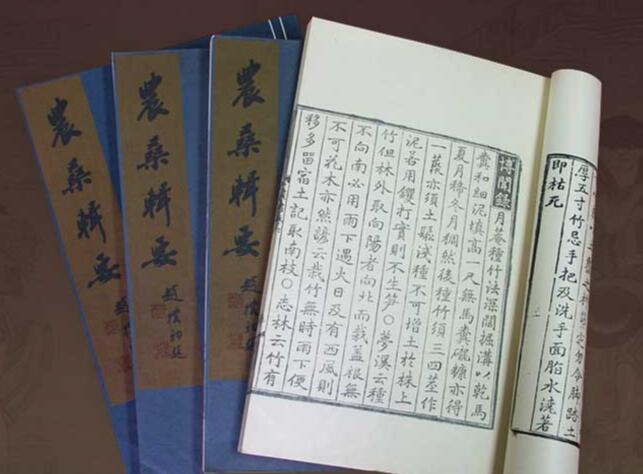 農桑輯要
農桑輯要
農桑輯要
定勿令脚踏土
厚五寸竹忌手把及洗手面脂水澆著
即枯死
博聞錄月菴種竹法深闊掘溝以乾馬
糞和細泥填高一尺無馬糞礱糠亦得
夏月稀冬月稠然後種竹須三四莖作
一藂亦須土鬆淺種不可增土於株上
泥若用钁打實則不生筍〇夢溪云種
竹但林外取向陽者向北而栽蓋根無
不向南必用雨下遇火日及有西風則
不可花木亦然諺云栽竹無時雨下便
移多留宿土記取南枝〇志林云竹有